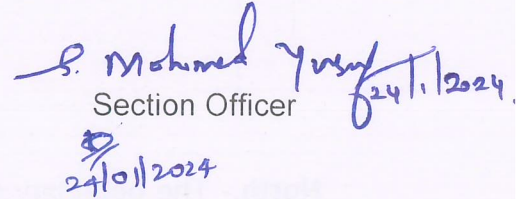 S. Mohomed Yusuf 24/1/2024.
Section Officer
24/01/2024